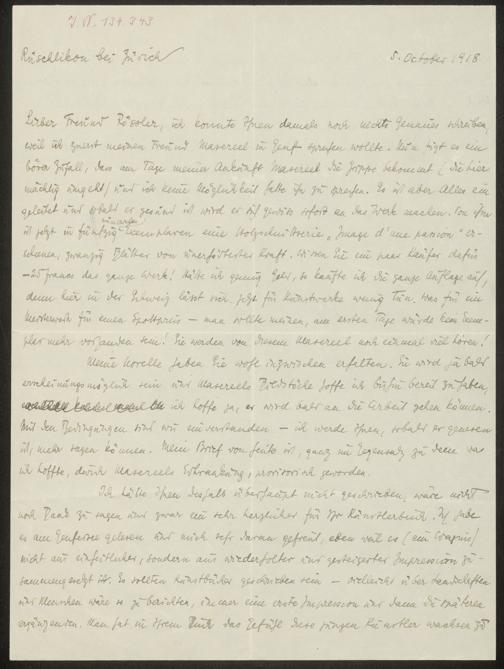 J. N. 134.343
Rüschlikon bei Zürich 5. October 1918
Lieber Freund Rössler, ich konnte Ihnen damals noch nichts Genaues schreiben,
weil ich zuerst meinen Freund Masereel in Genf sprechen wollte. Nun fügt es ein
böser Zufall, dass am Tage meiner Ankunft Masereel die Grippe bekommt (die hier
mächtig umgeht) und ich keine Möglichkeit hatte ihn zu sprechen. Es ist aber Alles ein-
geleitet und sobald er gesund ist wird er sich gewiss sofort an das Werk machen. Von ihm
ist jetzt in fünfzig Exemplaren eine Holzschnittserie „Image d'une passion" er-
schienen, zwanzig Blätter von unerhörtester Kraft. Wissen Sie ein paar Käufer dafür
– 25 francs das ganze Werk! Hätte ich genug Geld, so kaufte ich die ganze Auflage auf,
denn hier in der Schweiz lässt sich jetzt für Kunstwerke wenig tun. Was für ein
Meisterwerk für einen Spottpreis – man sollte meinen, am ersten Tage würde kein Exem-
plar mehr vorhanden sein! Sie werden von diesem Masereel noch einmal viel hören!
Meine Novelle haben Sie wohl inzwischen erhalten. Sie wird ja bald
erscheinungsmöglich sein und Masereels Holzstöcke hoffe ich bis hin bereit zu haben,
ich hoffe ja, er wird bald an die Arbeit gehen können.
Mit den Bedingungen sind wir einverstanden – ich werde Ihnen, sobald er genesen
ist, mehr sagen können. Mein Brief von heute ist, ganz im Gegensatz zu dem was
ich hoffte, durch Masereels Erkrankung, provisorisch geworden.
Ich hätte Ihnen deshalb überhaupt nicht geschrieben, wäre nicht
noch Dank zu sagen und zwar ein sehr herzlicher für Ihr Künstlerbuch. Ich habe
es am Genfersee gelesen und mich sehr daran gefreut, eben weil es
nicht aus einheitlicher, sondern aus wiederholter und gesteigerter Impression zu-
sammengesetzt ist. So sollten Kunstbücher geschrieben sein – vielleicht über Landschaften
und Menschen wäre so zu berichten, immer eine erste Impression und dann die späteren
ergänzenden. Man hat in Ihrem Buch das Gefühl diese jungen Künstler wachsen zu